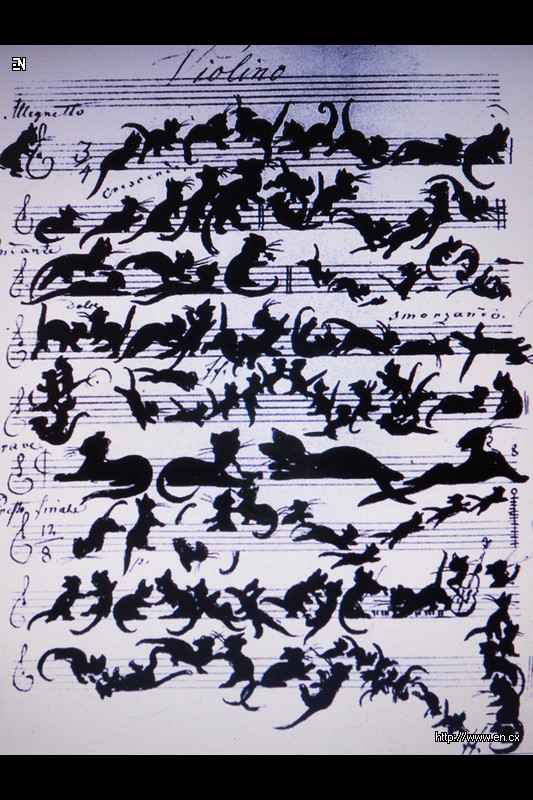 EN
Violino
Allegretto
3
4
Crescendo
dolce
smorzando.
Presto finale
12
8
p.
http://www.en.cx